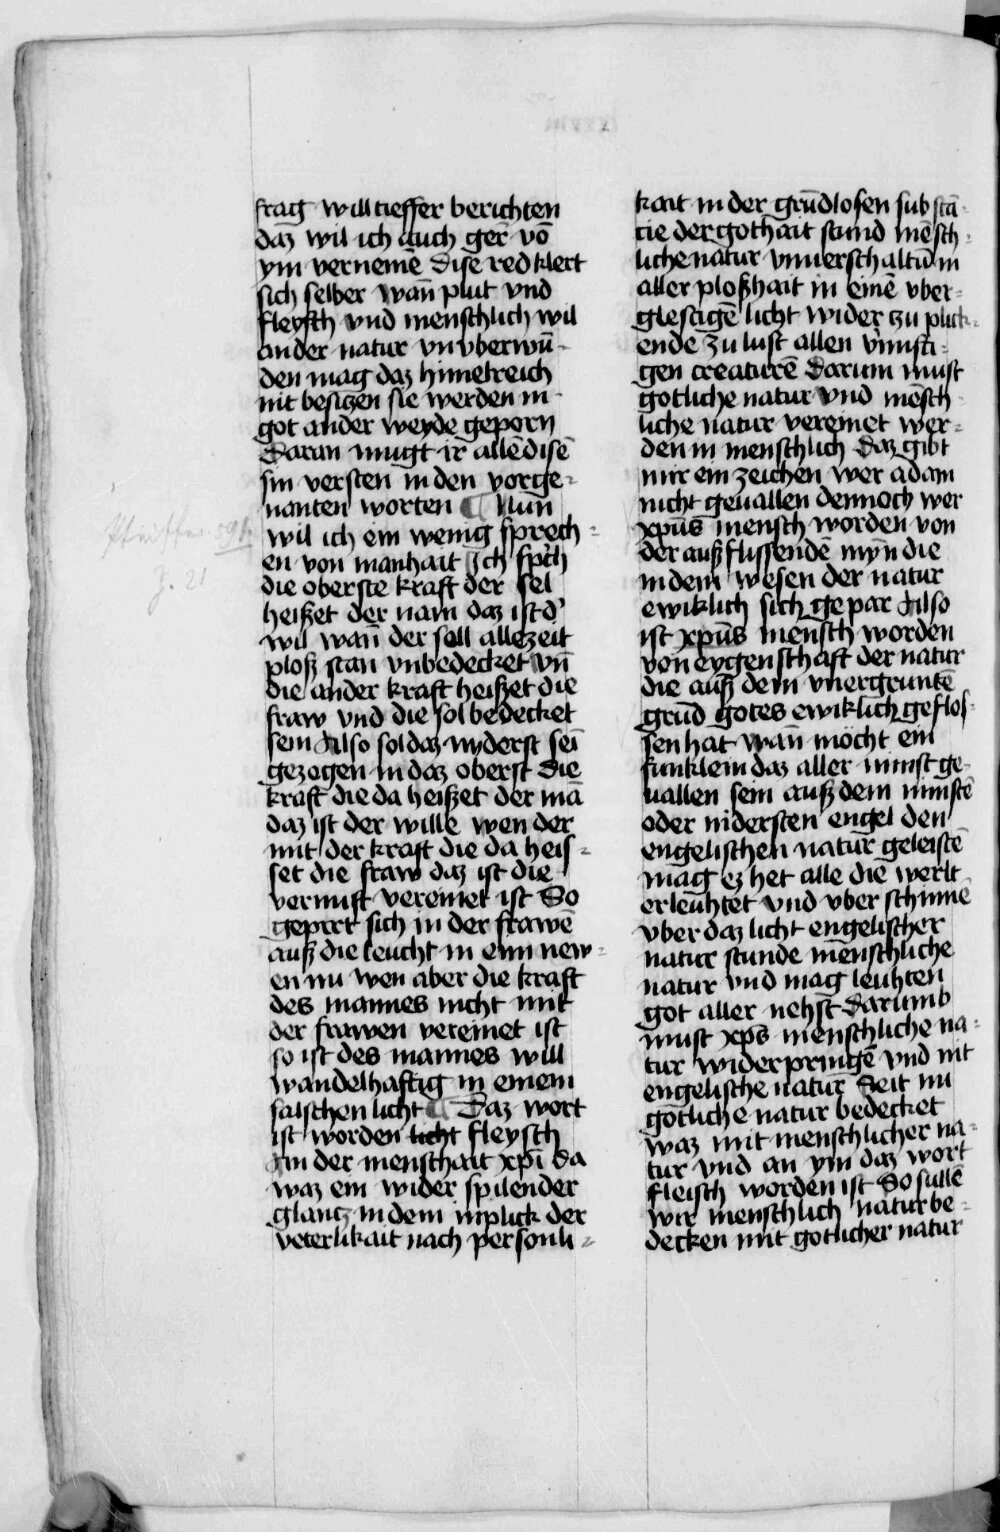 frag will tieffer berichten
daz wil ich auch ger vō
ym vernemē dise red klert
sich selber wañ plut vnd
fleysch vnd menschlich wil
an der natur vn vberwū-
den mag daz himelreich
nit besitzen sie werden in
got ander weyde geporn
Daran mugt ir alle disē
sin versten in den vorge-
nanten worten ¶ Nun
wil ich ein wenig sprech-
en von manhait Ich sp̄ch
die oberste kraft der sel
heißet der nam daz ist d'
wil wañ der soll allezeit
ploß stan vnbedecket vñ
die ander kraft heißet die
fraw vnd die sol bedecket
sein Also sol daz nyderst sei
gezogen in daz oberst die
kraft die da heißet der mā
daz ist der wille wen der
mit der kraft die da heis-
set die fraw daz ist die
vernuft vereinet ist So
gepert sich in der frawē
auß die leucht in einn new-
en nu wen aber die kraft
des mannes nicht mit
der frawen vereinet ist
so ist des mannes will
wandelhaftig in einem
falschen licht ¶ Daz wort
ist worden licht fleysch
an der menschait xp̄i da
waz ein wider spilender
glantz in dem inplick der
veterlikait nach personli-
kait in der grūdlosen substā-
cie der gothait stund mēsch-
liche natur vnuerschaltū in
aller ploßhait in einē vber-
glestigē licht wider tzu plick-
ende zu lust allen v'nufti-
gen creaturē Darum must
gotliche natur vnd mēsch-
liche natur vereinet wer-
den in menschlich daz gibt
mir ein zeichen wer adam
nicht geuallen dennoch wer
xpūs mensch worden von
der auß flissendē myn die
in dem wesen der natur
ewiklich sich gepar Also
ist xpūs mensch worden
von eygenschaft der natur
die auß dem vnergruntē
grūd gotes ewiklich geflos-
sen hat wañ möcht ein
funklein daz aller minst ge-
uallen sein auß dem minstē
oder nidersten engel den
engelischen natur geleistē
mag ez het alle die werlt
erleuhtet vnd vber schinne
vber daz licht engelischer
natur stunde menschliche
natur vnd mag leuhten
got aller nehst darumb
must xp̄s menschliche na-
tur wider pringē vnd nit
engelische natur Seit nu
götliche natur bedecket
waz mit menschlicher na-
tur vnd an ym daz wort
fleisch worden ist So sullē
wir menschlich natur be-
decken mit gotlicher natur
Pfeiffer 591.
Z. 21